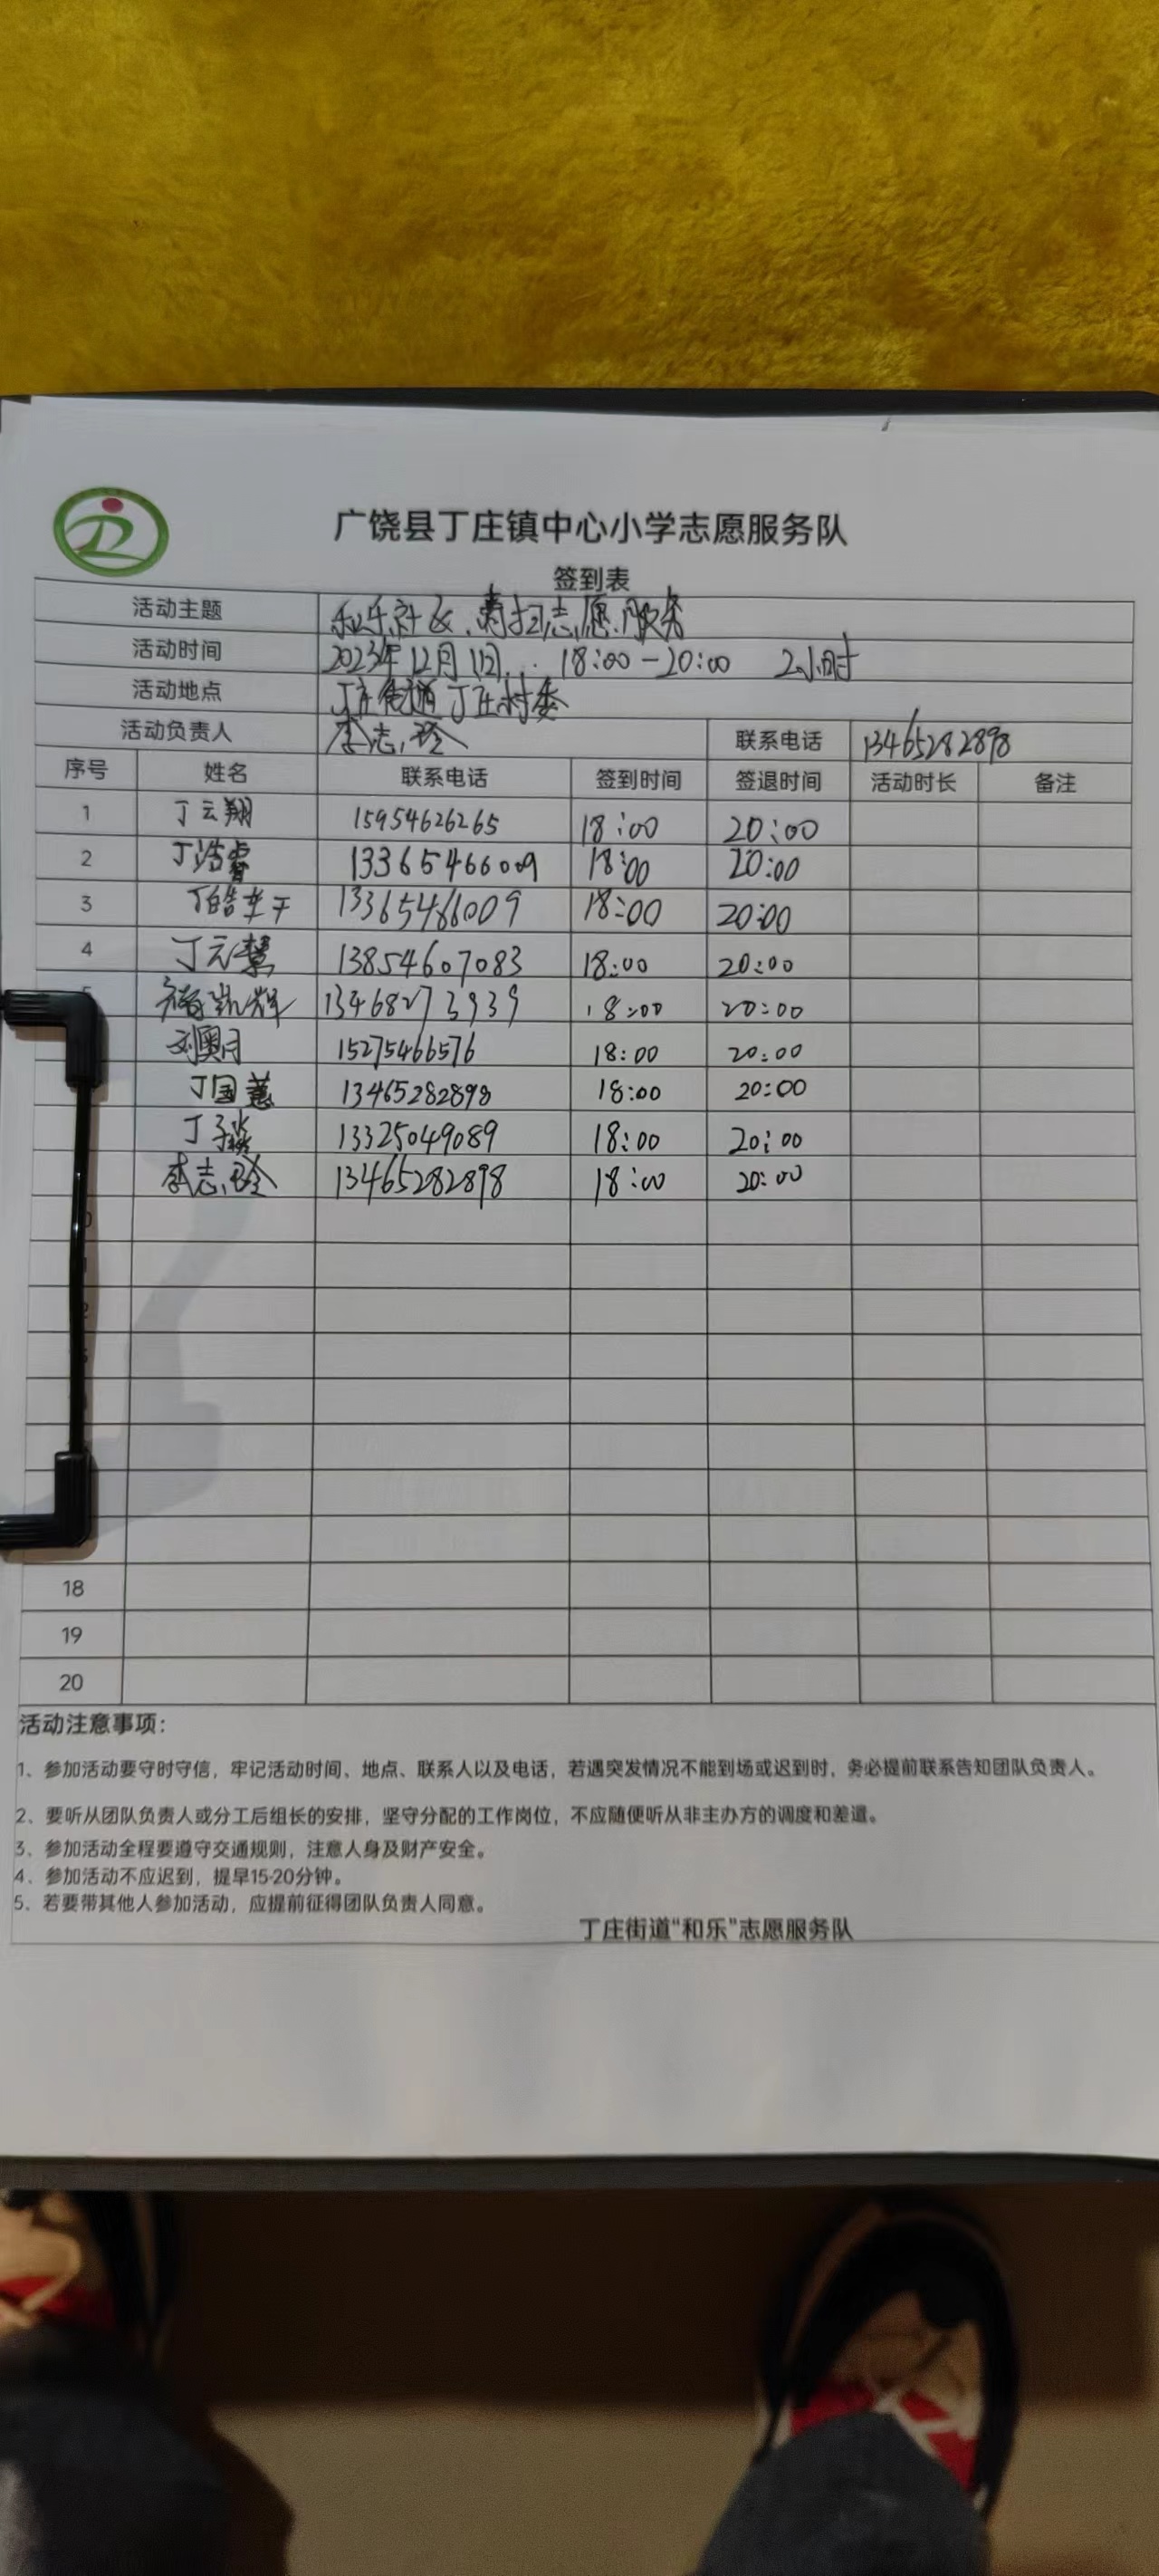 广饶县丁庄镇中心小学志愿服务队
签到表
活动主题 和乐社区清扫志愿服务
活动时间 2023年12月1日 18:00-20:00 2小时
活动地点 丁庄街道丁庄村委
活动负责人 李志玲 联系电话 13465282898
序号 姓名 联系电话 签到时间 签退时间 活动时长 备注
1 丁云翔 15954626265 18:00 20:00
2 丁浩睿 13365466009 18:00 20:00
3 13365466009 18:00 20:00
4 丁元慧 13854607083 18:00 20:00
凯辉 13468273939 18:00 20:00
刘奥月 15275466576 18:00 20:00
丁国蕙 13465282898 18:00 20:00
丁子淼 13325049089 18:00 20:00
李志玲 13465282898 18:00 20:00
18
19
20
活动注意事项：
1、参加活动要守时守信，牢记活动时间、地点、联系人以及电话，若遇突发情况不能到场或迟到时，务必提前联系告知团队负责人。
2、要听从团队负责人或分工后组长的安排，坚守分配的工作岗位，不应随便听从非主办方的调度和差遣。
3、参加活动全程要遵守交通规则，注意人身及财产安全。
4、参加活动不应迟到，提早15-20分钟。
5、若要带其他人参加活动，应提前征得团队负责人同意。
丁庄街道“和乐”志愿服务队